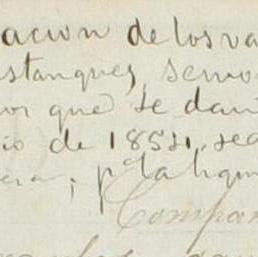 acion de los va
stanques, semo
or que se dani
io de 1854, sea
era; pa la liqui
Compan